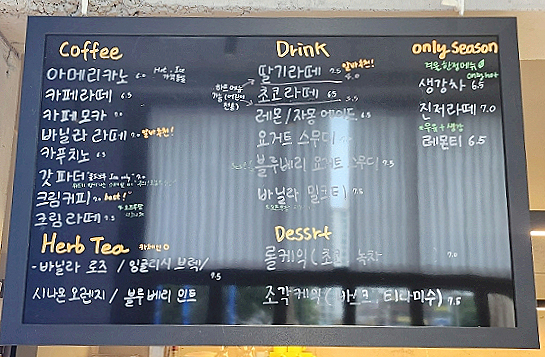 Coffee
아메리카노 6.0 Hot, Ice
카페라떼 6.5
카페모카 7.0
바닐라 라떼 7.0 알바추천!
카푸치노 6.5
갓파더 7.0
크림커피 7.0 best!
크림라떼 7.5
Herb Tea 카페인 0
- 바닐라 로즈 / 잉글리시 브렉 /
시나몬 오렌지 / 블루베리 민트
7.5
Drink
딸기라떼 7.5 알바추천!
초코라떼 6.5
레몬/자몽 에이드 6.5
요거트 스무디 7.0
블루베리 요거트 스무디 7.5
바닐라 밀크티 7.5
Dessrt
롤케익 (초코, 녹차 7.0
조각케익 (티라미수) 7.5
only season
겨울 한정메뉴
생강차 6.5 only hot
진저라떼 7.0
레몬티 6.5